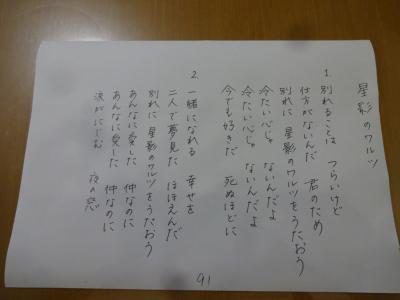 星影のワルツ
1. 別れることは つらいけど
仕方がないんだ 君のため
別れに 星影のワルツをうたおう
冷たい心じゃ ないんだよ
冷たい心じゃ ないんだよ
今でも好きだ 死ぬほどに
2. 一緒になれる 幸せを
二人で夢見た ほほえんだ
別れに 星影のワルツをうたおう
あんなに愛した 仲なのに
あんなに愛した 仲なのに
涙がにじむ 夜の窓
91